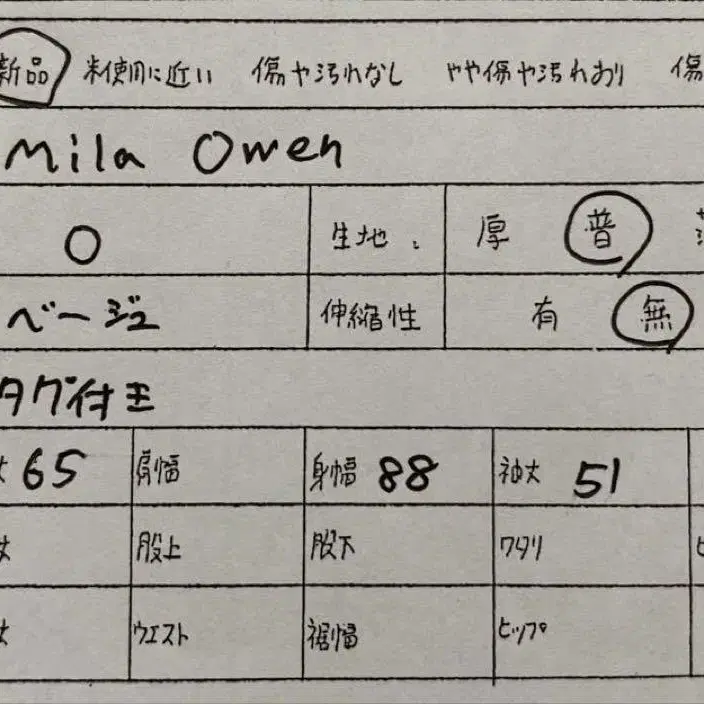 新品 未使用に近い 傷や汚れなし やや傷や汚れあり 傷
Mila Owen
0 生地: 厚 普
ベージュ 伸縮性 有 無
タグ付き
丈 65 肩幅 身幅 88 袖丈 51
丈 股上 股下 ワタリ
丈 ウエスト 裾幅 ヒップ